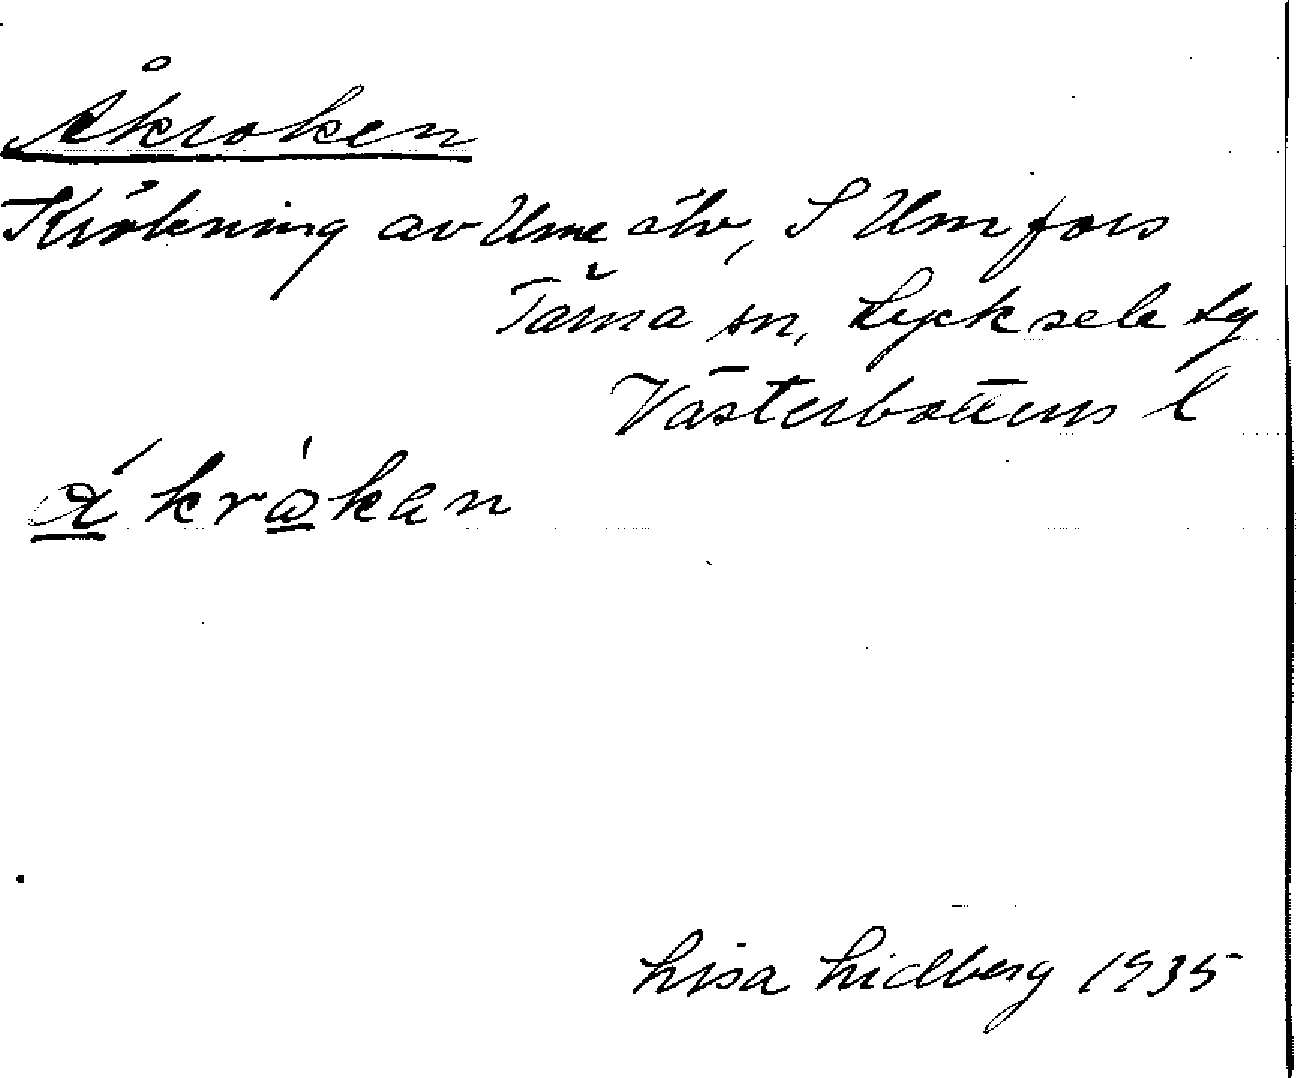 Åkroken
Krökning av Ume älv, S Umfors
Tärna sn, Lycksele lg
Västerbottens l
ɑ́ krɷ̀kan
Lisa Lidberg 1935